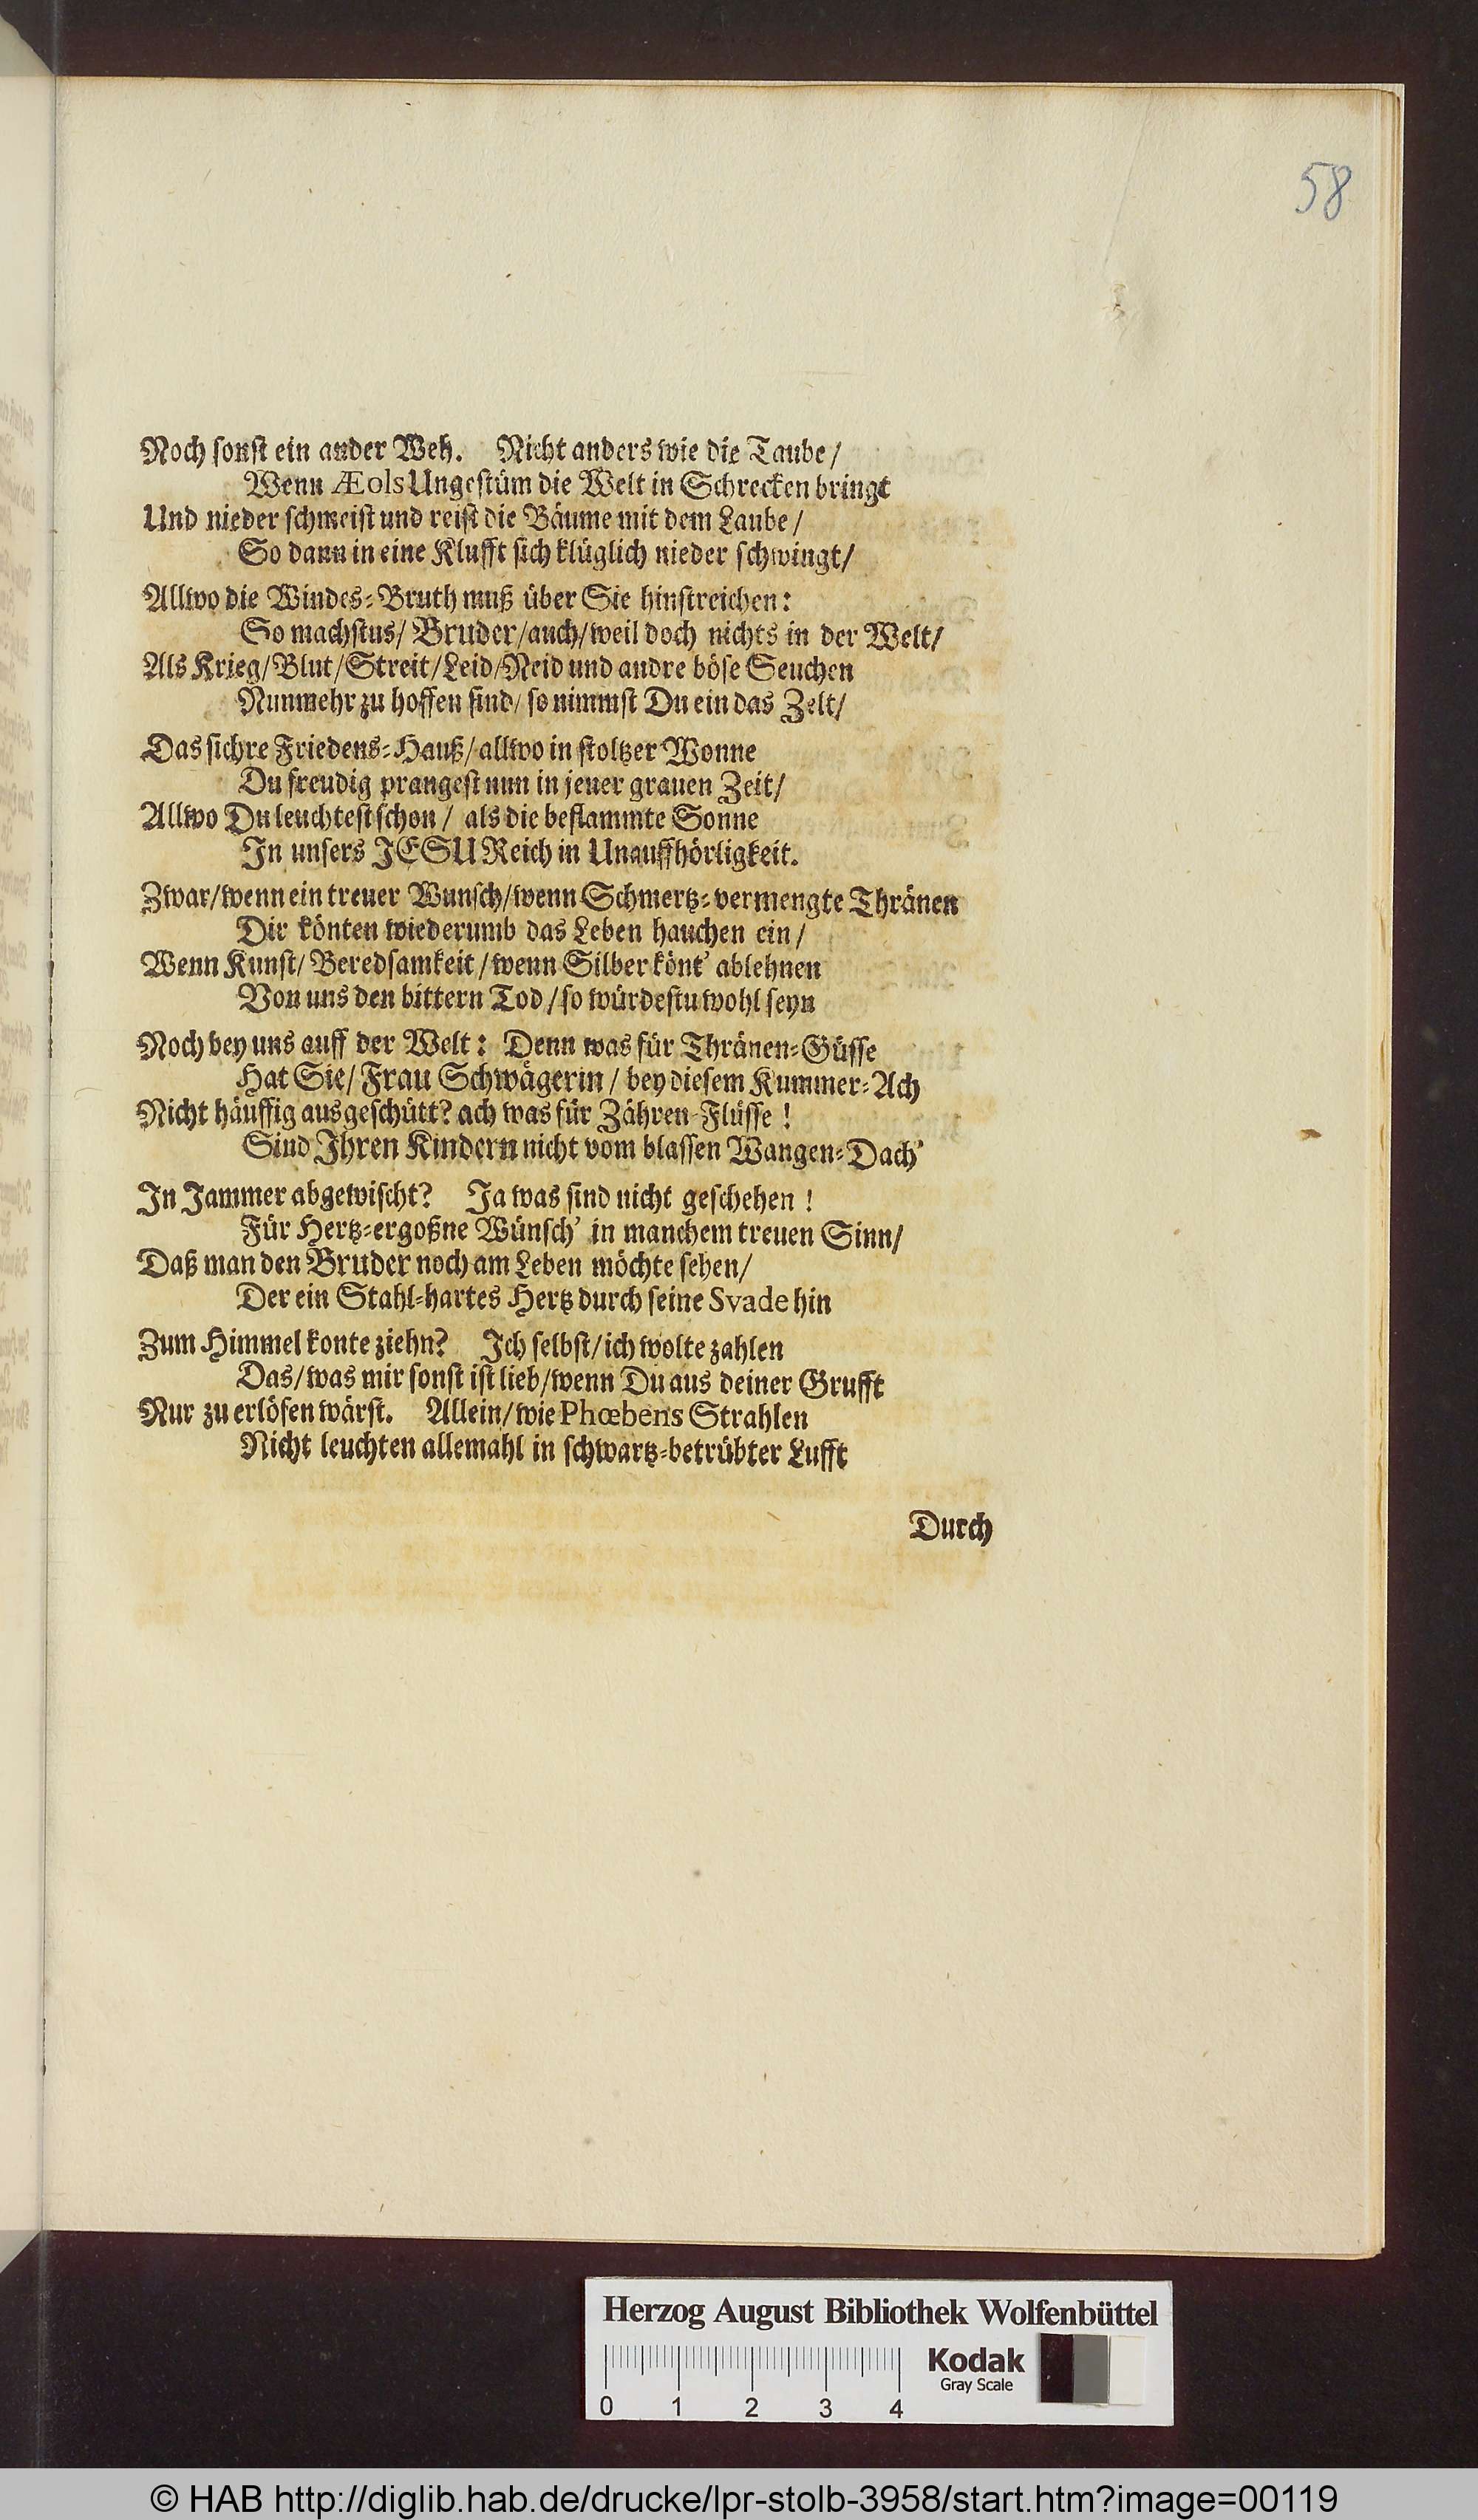 58
Noch sonst ein ander Weh. Nicht anders wie die Taube/
Wenn Æols Ungestüm die Welt in Schrecken bringt
Und nieder schmeist und reist die Bäume mit dem Laube/
So dann in eine Klufft sich klüglich nieder schwingt/
Allwo die Windes-Bruth muß über Sie hinstreichen:
So machstus/ Bruder/auch/weil doch nichts in der Welt/
Als Krieg/Blut/Streit/Leid/Neid und andre böse Seuchen
Nunmehr zu hoffen sind/ so nimmst Du ein das Zelt/
Das sichre Friedens-Hauß/allwo in stoltzer Wonne
Du freudig prangest nun in jener grauen Zeit/
Allwo Du leuchtest schon/ als die beflammte Sonne
In unsers JESU Reich in Unauffhörligkeit.
Zwar/wenn ein treuer Wunsch/wenn Schmertz-vermengte Thränen
Dir könten wiederumb das Leben hauchen ein/
Wenn Kunst/ Beredsamkeit/wenn Silber könt' ablehnen
Von uns den bittern Tod/so würdestu wohl seyn
Noch bey uns auff der Welt: Denn was für Thränen-Güsse
Hat Sie/ Frau Schwägerin/ bey diesem Kummer-Ach
Nicht häuffig ausgeschütt? ach was für Zähren-Flüsse!
Sind Ihren Kindern nicht vom blassen Wangen-Dach'
In Jammer abgewischt? Ja was sind nicht geschehen!
Für Hertz-ergoßne Wünsch' in manchem treuen Sinn/
Daß man den Bruder noch am Leben möchte sehen/
Der ein Stahl-hartes Hertz durch seine Svade hin
Zum Himmel konte ziehn? Ich selbst/ich wolte zahlen
Das/was mir sonst ist lieb/wenn Du aus deiner Grufft
Nur zu erlösen wärst. Allein/wie Phœbens Strahlen
Nicht leuchten allemahl in schwartz-betrübter Lufft
Durch
Herzog August Bibliothek Wolfenbüttel
Kodak
Gray Scale
0 1 2 3 4
© HAB http://diglib.hab.de/drucke/lpr-stolb-3958/start.htm?image=00119